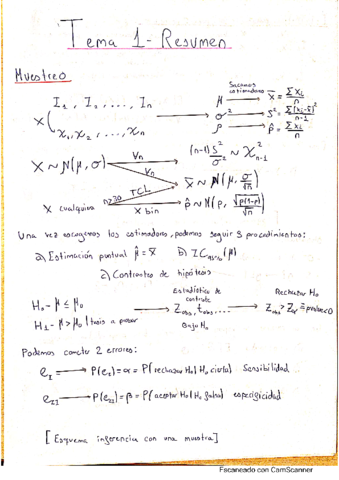 Tema 1- Resumen
Muestreo
X( I₁, I₂, ..., Iₙ
x₁, x₂, ..., xₙ
Sacamos estimadores
μ → x̄ = Σxᵢ/n
σ² → S² = Σ(xᵢ-x̄)²/n-1
ρ → p̂ = Σxᵢ/n
X ~ N(μ, σ) ∀n (n-1) S²/σ² ~ χ²ₙ₋₁
∀n x̄ ~ N(μ, σ/√n)
X cualquiera n≥30 TCL
X bin p̂ ~ N(p, √p(1-p)/√n)
Una vez escogemos los estimadores, podemos seguir 3 procedimientos:
a) Estimación puntual μ̂ = x̄ b) IC (μ)
c) Contrastes de hipótesis
Estadístico de contraste
Rechazar H₀
H₀ - μ ≤ μ₀
H₁ - μ > μ₀ | tesis a probar
→ Zobs, tobs, ... → Zobs >
Bajo H₀
Podemos cometer 2 errores:
e_I → P(e_I) = α = P(rechazar H₀ | H₀ cierta) Sensibilidad
e_II → P(e_II) = β = P(aceptar H₀ | H₀ falsa) especificidad
[Esquema inferencia con una muestra]
Escaneado con CamScanner